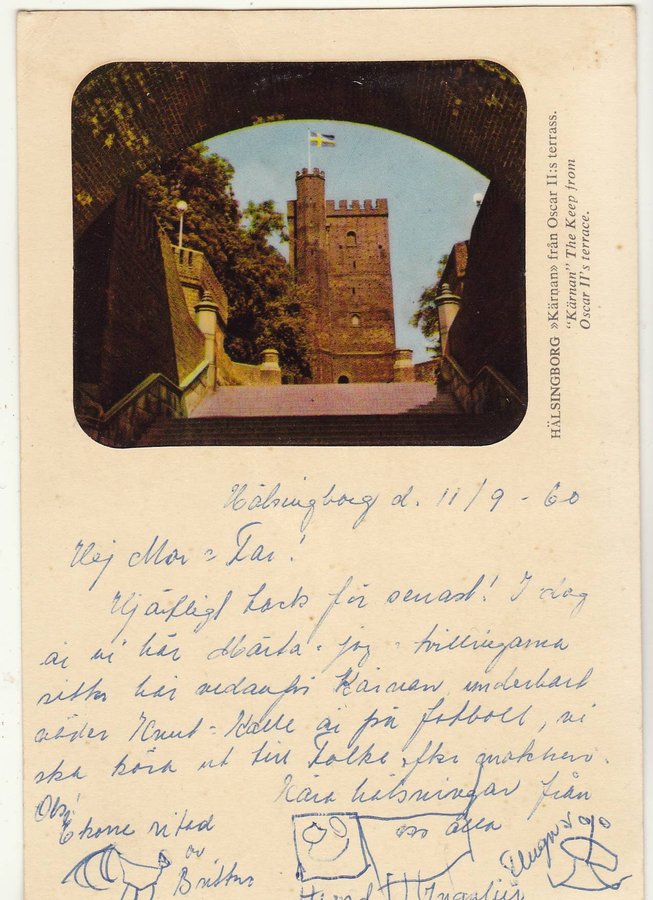 HÄLSINGBORG »Kärnan» från Oscar II:s terrass.
"Kärnan" The Keep from
Oscar II's terrace.
Hälsingborg d. 11/9 - 60
Hej Mor = Far!
Hjärtligt tack för senast! I dag
är vi här Märta = jag = tvillingarna
sitter här nedanför Kärnan, underbart
väder Knut = Kalle är på fotboll, vi
ska köra ut till Folke efter matchen.
Kära hälsningar från
oss alla
Obs!
Ekorre ritad
av
Britten